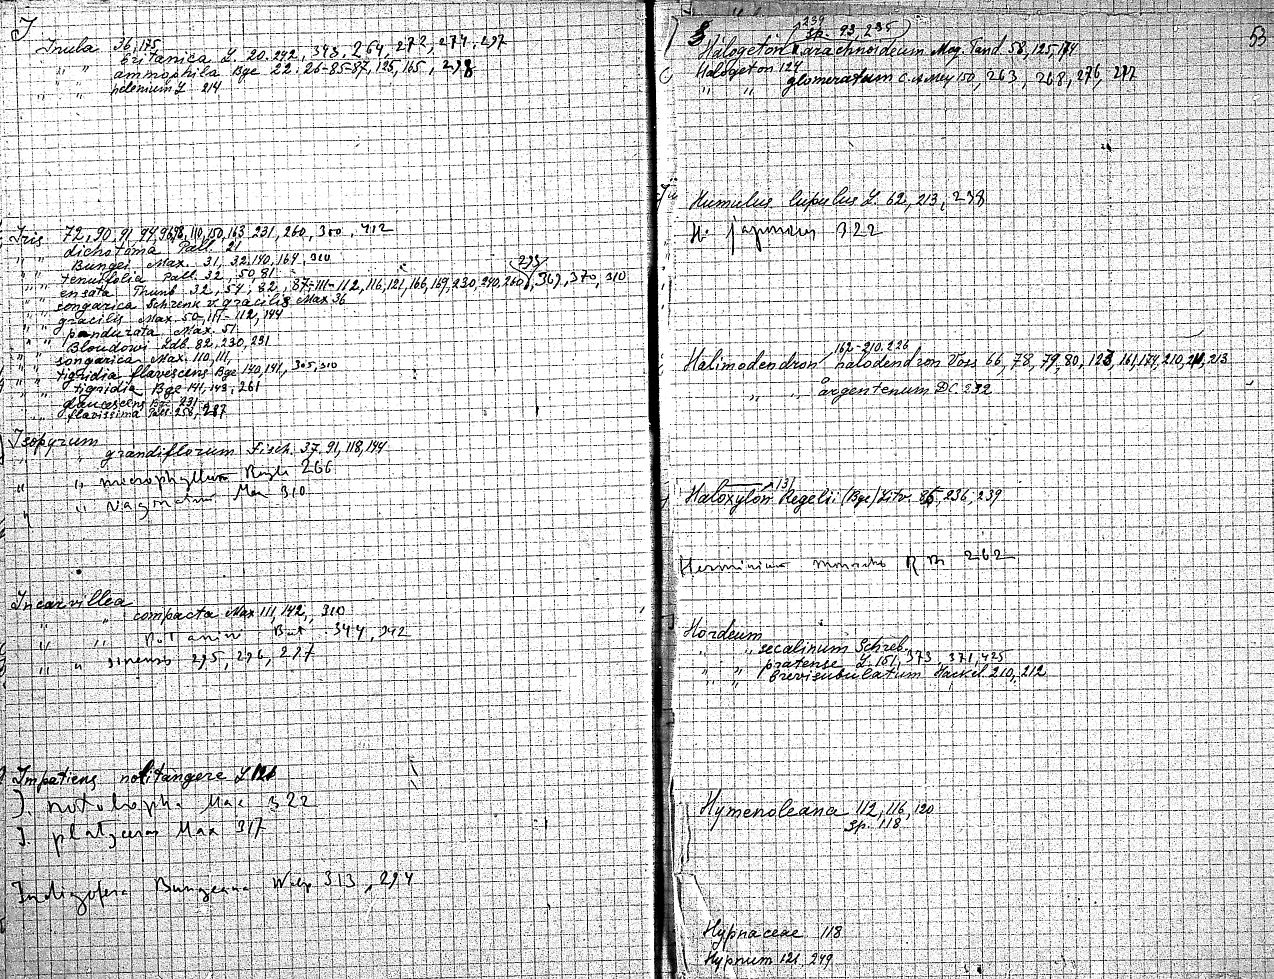 J
Inula 36, 175
" " britanica L. 20. 242, 343, 264, 272, 274, 297
" " ammophila Bge 22. 26-85-87, 125, 165, 298
" " helenium L. 214
Iris 72, 90, 91, 94, 96, 98, 110, 150, 163, 231, 260, 300, 412
" " dichotoma Pall. 21
" " Bungei Max. 31, 32, 140, 164, 310
" " tenuifolia Pall. 32, 50, 81
" " ensata Thunb 32, 54, 82, 87-111-112, 116, 121, 166, 169, 230, 240, 260, 293, 367, 370, 310
" " songarica Schrenk v gracilis Max 36
" " gracilis Max. 50, 111-112, 144
" " pandurata Max. 51
" " Bloudowi Ldb. 82, 230, 231
" " songarica Max. 110, 111,
" " tigridia flavescens Bge 140, 141, 305, 310
" " tigridia Bge 141, 143, 261
" " glaucescens Bge 231
" " flavissima Pall 256, 287
Isopyrum
" " grandiflorum Fisch. 37, 91, 118, 144
" " microphyllum Rgl 266
" " vaginatum Max 310
Incarvillea
" " compacta Max 111, 142, 310
" " Potanini Bat 344, 342
" " sinensis 295, 296, 297
Impatiens nolitangere L 121
J. notolopha Max 322
J. platyceras Max 317
Indigofera Bungeana Walp 313, 294
53
239
sp. 93, 235
Halogeton arachnoideum Moq. Tand. 58, 125, 174
Halogeton 124
" " glomeratum C.A. Mey 150, 263, 268, 276, 277
Humulus lupulus L. 62, 213, 238
H. japonicus 322
162-210, 226
Halimodendron halodendron Voss 66, 78, 79, 80, 123, 161, 174, 210, 211, 213
" " argenteum DC. 232
131
Haloxylon Regeli (Bge) Litw. 86, 236, 239
Herminium monorchis R Br 262
Hordeum
" " secalinum Schreb.
" " pratense L. 151, 373, 371, 425
" " brevisubulatum Hackel 210, 212
Hymenoleana 112, 116, 120
sp. 118
Hypnaceae 118
Hypnum 121, 249